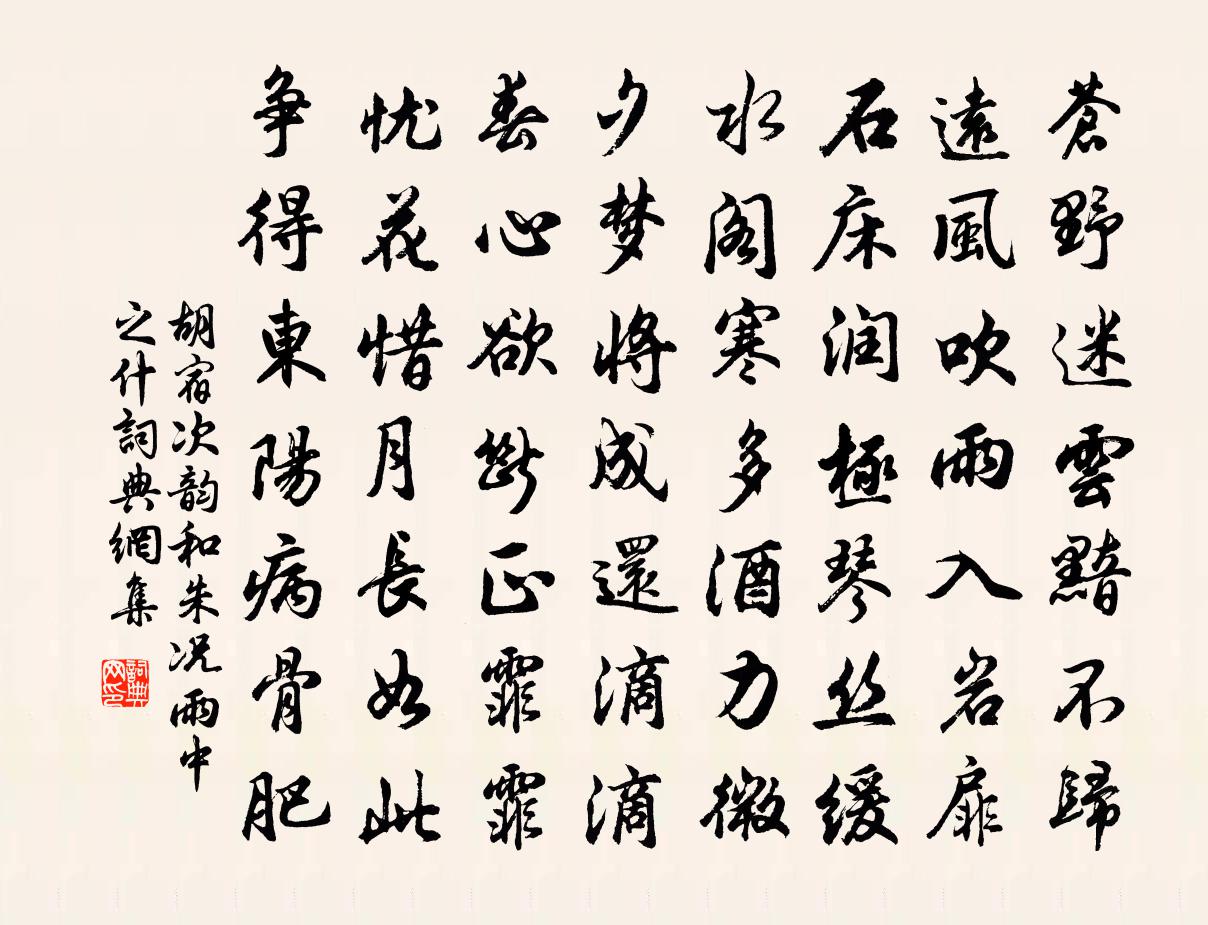 蒼野迷雲黯不歸
遠風吹雨入岩扉
石床润極琴丝缓
水阁寒多酒力微
夕梦將成還滴滴
春心欲斷正霏霏
忧花惜月長如此
争得東陽病骨肥
胡宿次韵和朱况雨中
之什詞典網集
詞典
网印